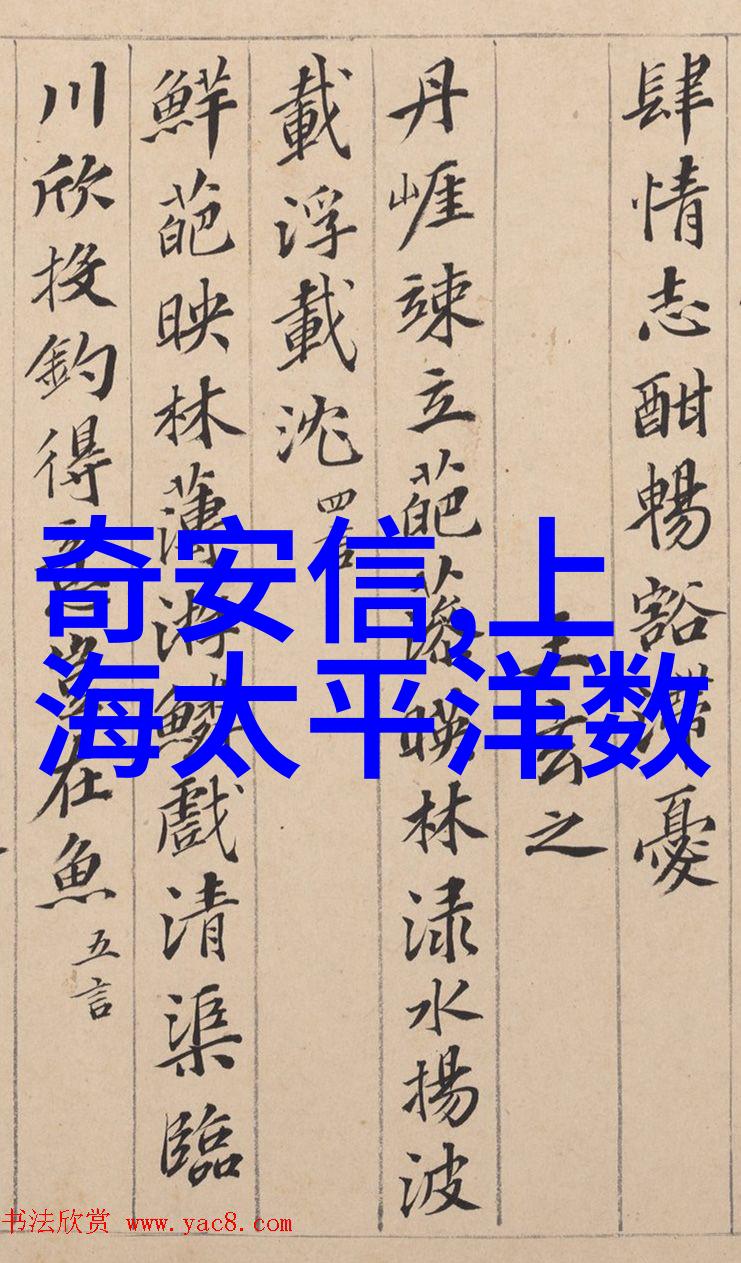 肆情志酣暢豁滯憂
王玄之
丹崕竦立葩藻暎林渌水揚波
載浮載沈 四言
鮮葩映林薄游鱗戲清渠臨
川欣投釣得意豈在魚 五言
奇安信,上
海太平洋数
书法欣赏 www.yac8.com